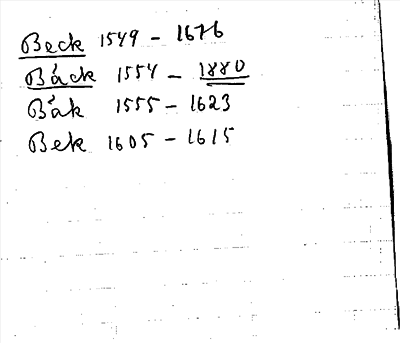 Beck 1549 - 1676
Båck 1554 - 1880
Båk 1555 - 1623
Bek 1605 - 1615